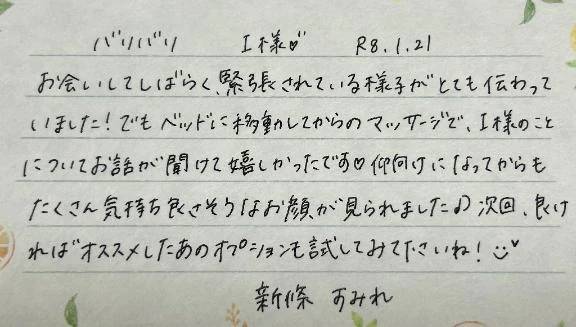 バリバリ I様♡ R8.1.21
お会いしてしばらく、緊張されている様子がとても伝わって
いました!でもベッドに移動してからのマッサージで、I様のこと
についてお話が聞けて嬉しかったです♡仰向けになってからも
たくさん気持ち良さそうなお顔が見られました♪次回、良け
ればオススメしたあのオプションも試してみて下さいね!
新條 すみれ